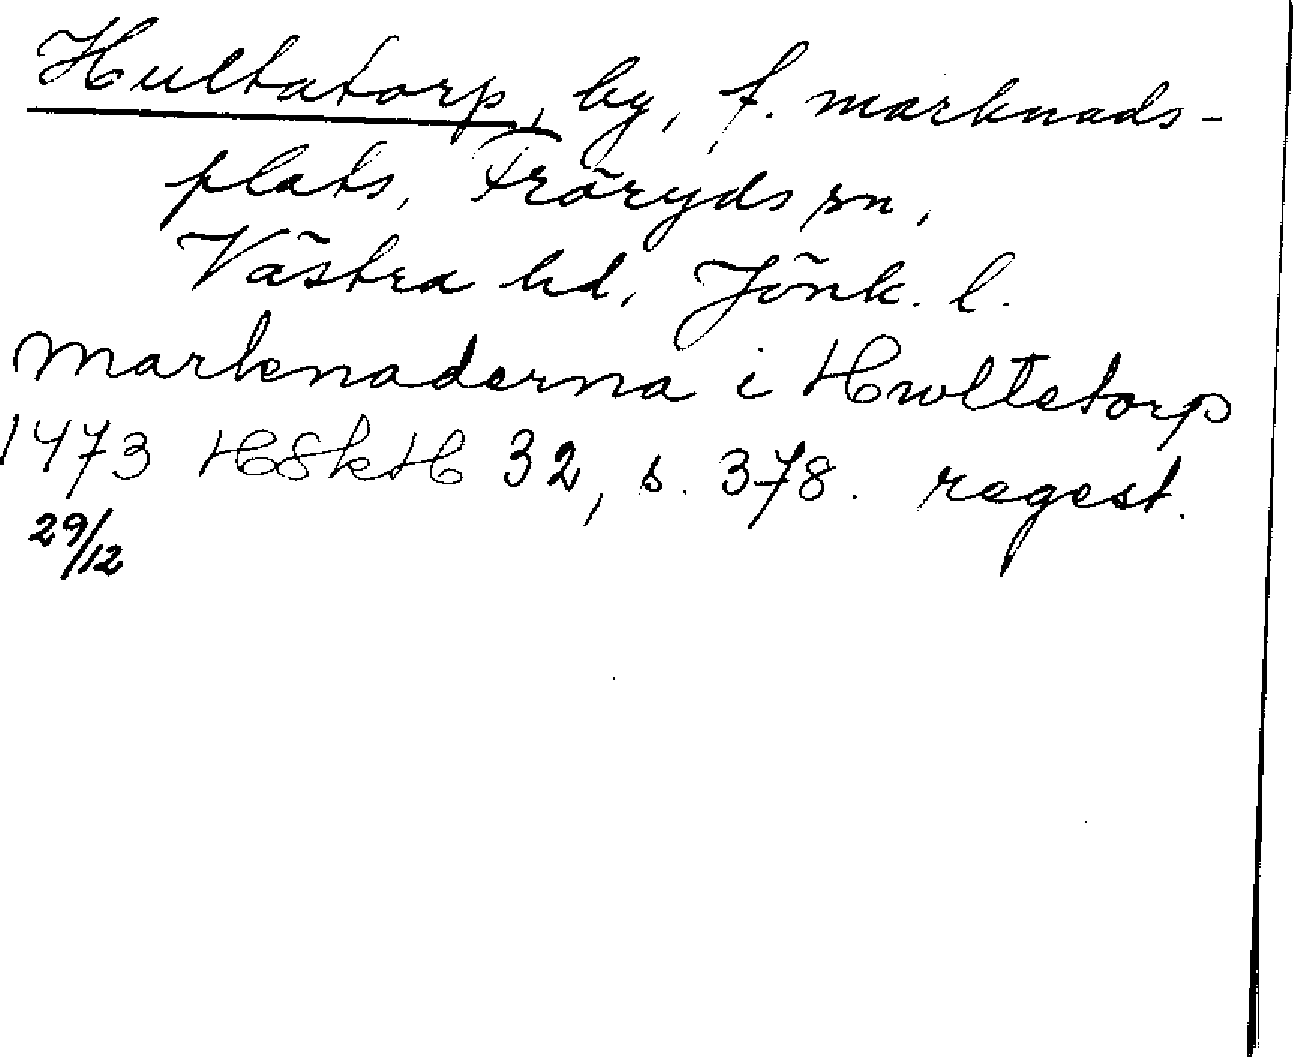 Hultatorp, by, f. marknads-
plats, Fröryds sn,
Västra hd, Jönk. l.
Marknaderna i Hwltetorp
1473 HSkH 32, s. 378. regest.
29/12